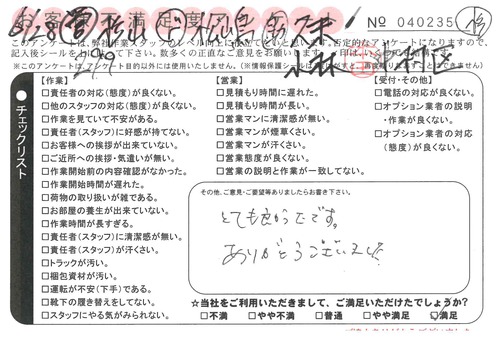 お客様満足度
No 040235
このアンケートは、弊社作業スタッフのレベル向上に役立てております。否定的なアンケートになりますので、
記入後シールを
数多くの正直なご意見をお願い
※このアンケートはアンケート目的以外には使用いたしません。
チェックリスト
【作業】
□責任者の対応(態度)が良くない。
□他のスタッフの対応(態度)が良くない。
□作業を見ていて不安がある。
□責任者(スタッフ)に好感が持てない。
□お客様への挨拶が出来ていない。
□ご近所への挨拶・気遣いが無い。
□作業開始前の内容確認がなかった。
□作業開始時間が遅れた。
□荷物の取り扱いが雑である。
□お部屋の養生が出来ていない。
□作業時間が長すぎる。
□責任者(スタッフ)に清潔感が無い。
□責任者(スタッフ)が汗くさい。
□トラックが汚い。
□梱包資材が汚い。
□運転が不安(下手)である。
□靴下の履き替えをしてない。
□スタッフにやる気がみられない。
【営業】
□見積もり時間に遅れた。
□見積もり時間が長い。
□営業マンに清潔感が無い。
□営業マンが煙草くさい。
□営業マンが汗くさい。
□営業態度が良くない。
□営業の説明と作業が一致してない。
【受付・その他】
□電話の対応が良くない。
□オプション業者の説明
・作業が良くない。
□オプション業者の対応
(態度)が良くない。
その他、ご意見・ご要望等ありましたらお書き下さい。
とても良かったです。
ありがとうございました
☆当社をご利用いただきまして、ご満足いただけたでしょうか?
□不満 □やや不満 □普通 □やや満足 ☑満足